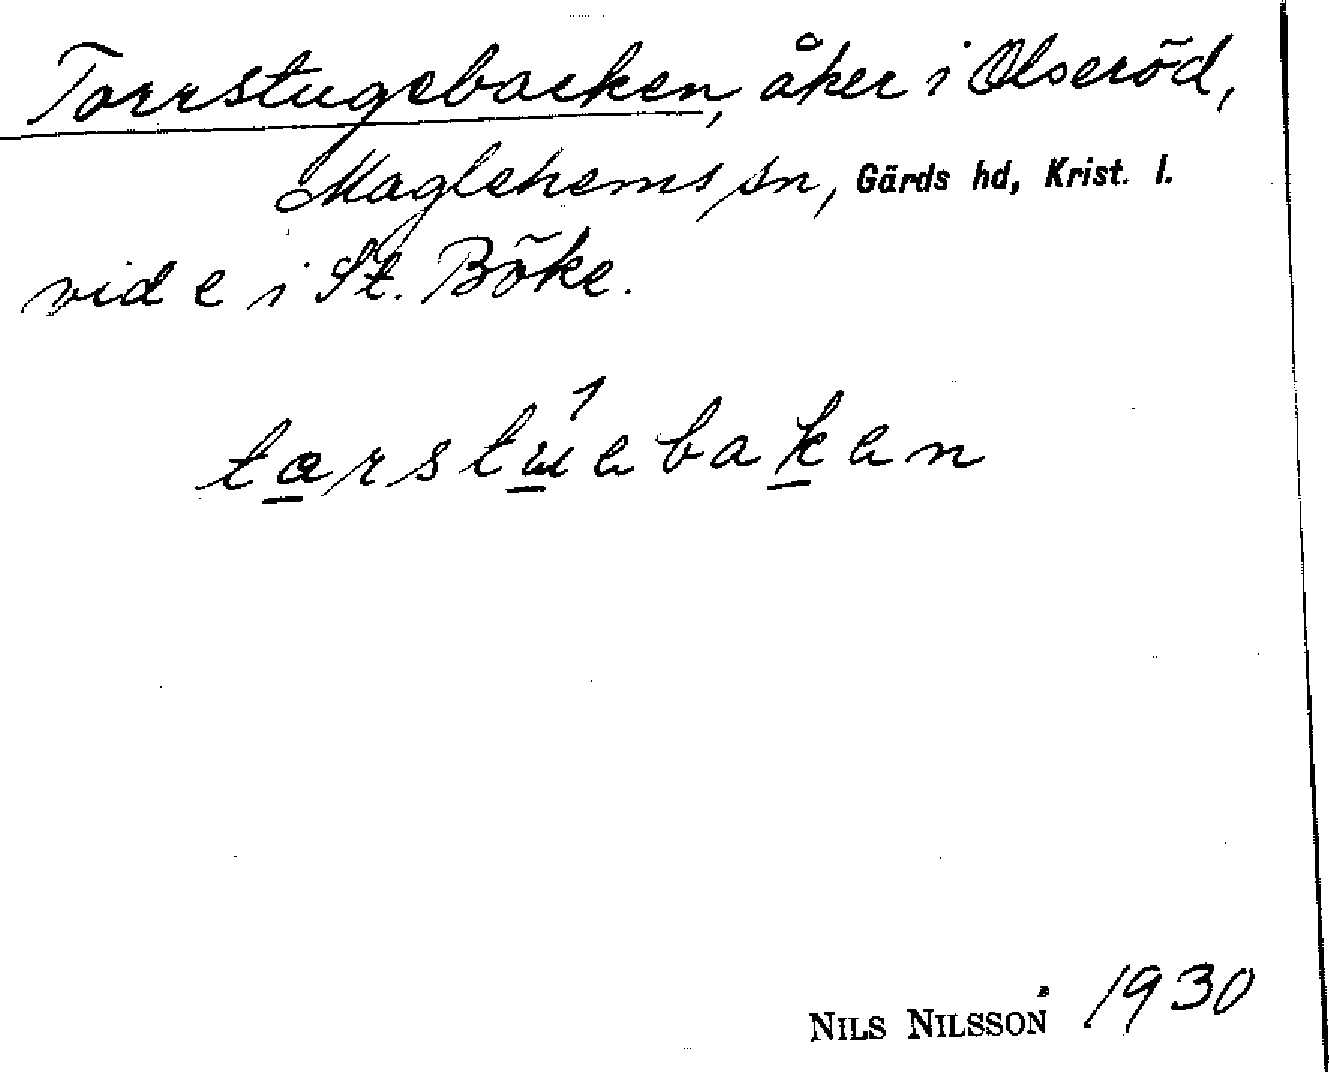 Torrstugebacken, åker i Olseröd,
Maglehems sn, Gärds hd, Krist. l.
vid e i St. Böke.
tarstúebakan
NILS NILSSON 1930